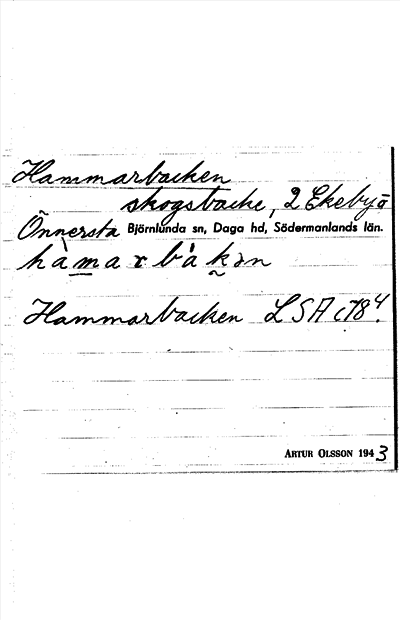 Hammarbacken
skogsbacke, 2 Ekeby ö
Önnersta Björnlunda sn, Daga hd, Södermanlands län.
hàmarbák̰ən
Hammarbacken LSA c78⁴.
ARTUR OLSSON 1943